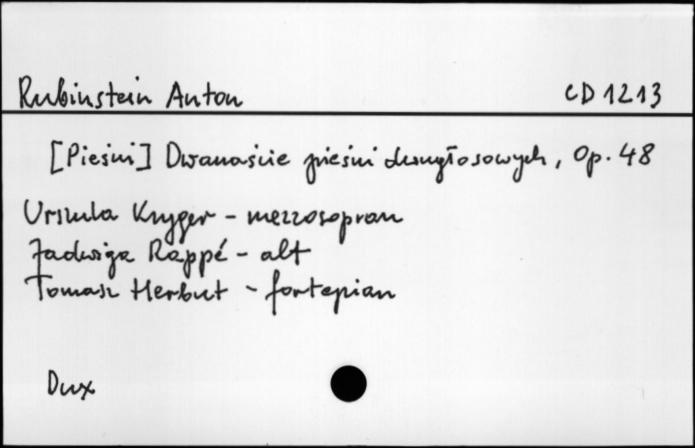 Rubinstein Anton CD 1213
[Pieśni] Dwanaście pieśni dwugłosowych, Op. 48
Urszula Kryger - mezzosopran
Jadwiga Rappé - alt
Tomasz Herbut - fortepian
Dux